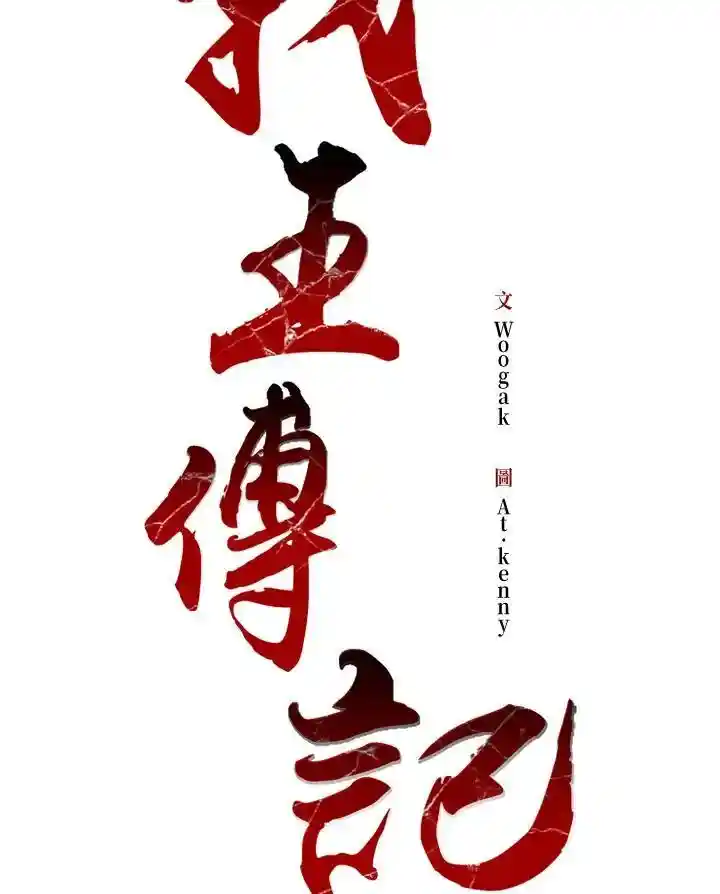 王傳記
文 Woogak 圖 At.kenny